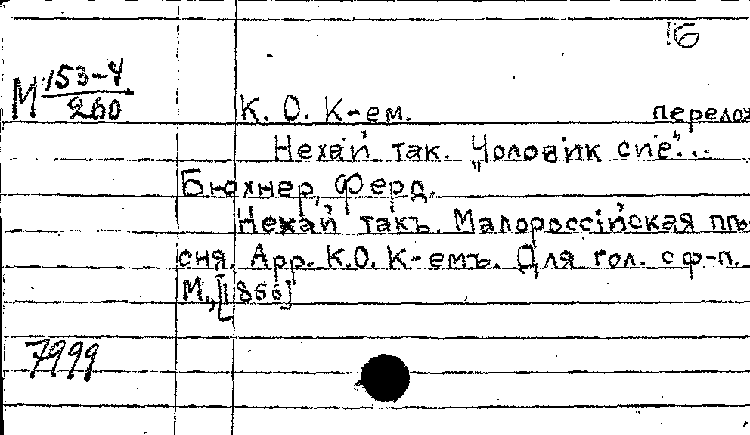 16
М 153-4/260
К. О. К-ем. перелож
Нехай так. "Чоловик спе"...
Бюхнер, Ферд.
Нехай такъ. Малороссійская пѣ-
сня. Арр. К.О. К-емъ. Для гол. с ф-п.
М., [1866]
7999